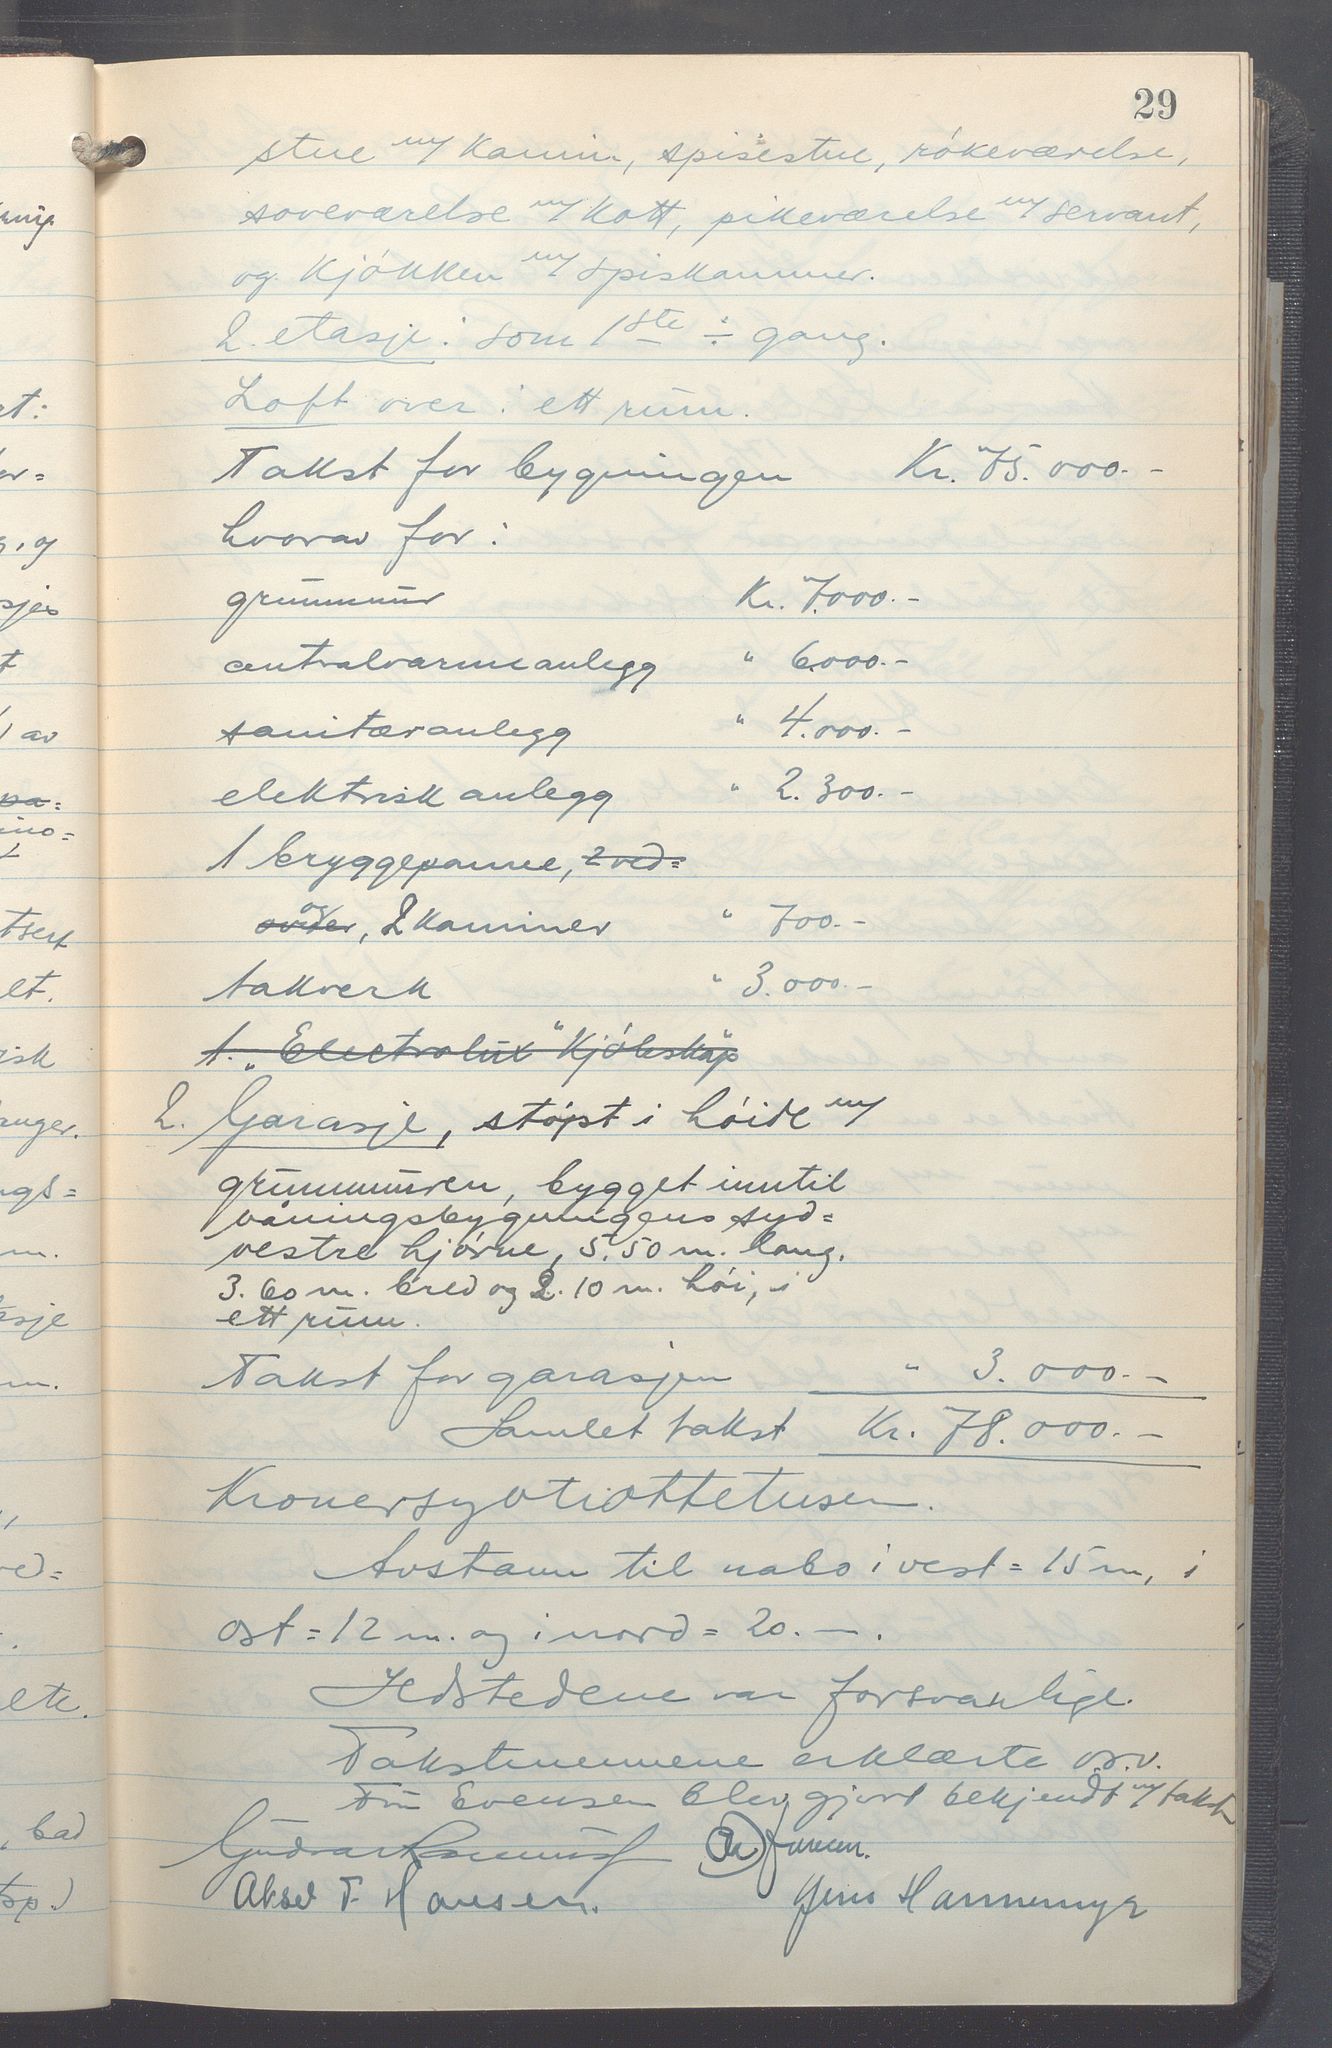 29
stue m/ kamin, spisestue, rökeværelse,
soveværelse m/ kott, pikeværelse m/ servant,
og kjökken m/ spiskammer.
2. etasje: som 1ste ÷ gang.
Loft over: ett rum.
Takst for bygningen Kr. 75.000.-
hvorav for:
grunnmur Kr. 7.000.-
centralvarmeanlegg " 6.000.-
sanitæranlegg " 4.000.-
elektrisk anlegg " 2.300.-
1 bryggepanne, 2 ved=
ovner, og 2 kaminer " 700.-
takverk " 3.000.-
1. "Electrolux" kjöleskap
2. Garasje, stöpt i höide m/
grunnmuren, bygget inntil
våningsbygningens syd=
vestre hjörne, 5.50 m. lang.
3.60 m. bred og 2.10 m. höi, i
ett rum.
Takst for garasjen " 3.000.-
Samlet takst Kr. 78.000.-
Kronersyvtiottetusen.
Avstann til nabo i vest = 15 m, i
ost = 12 m. og i nord = 20. — .
Ildstedene var forsvarlige.
Takstmennene erklærte o.s.v.
Fru Evensen blev gjort bekjendt m/ takstn
Aksel T. Hansen. Jens Hannemyr
ernip
rt:
or=
g, og
sjes
t
av
pa=
ino=
tsert
elt.
risk
anger.
ngs=
m.
sje
m.
ved=
elte.
, bad